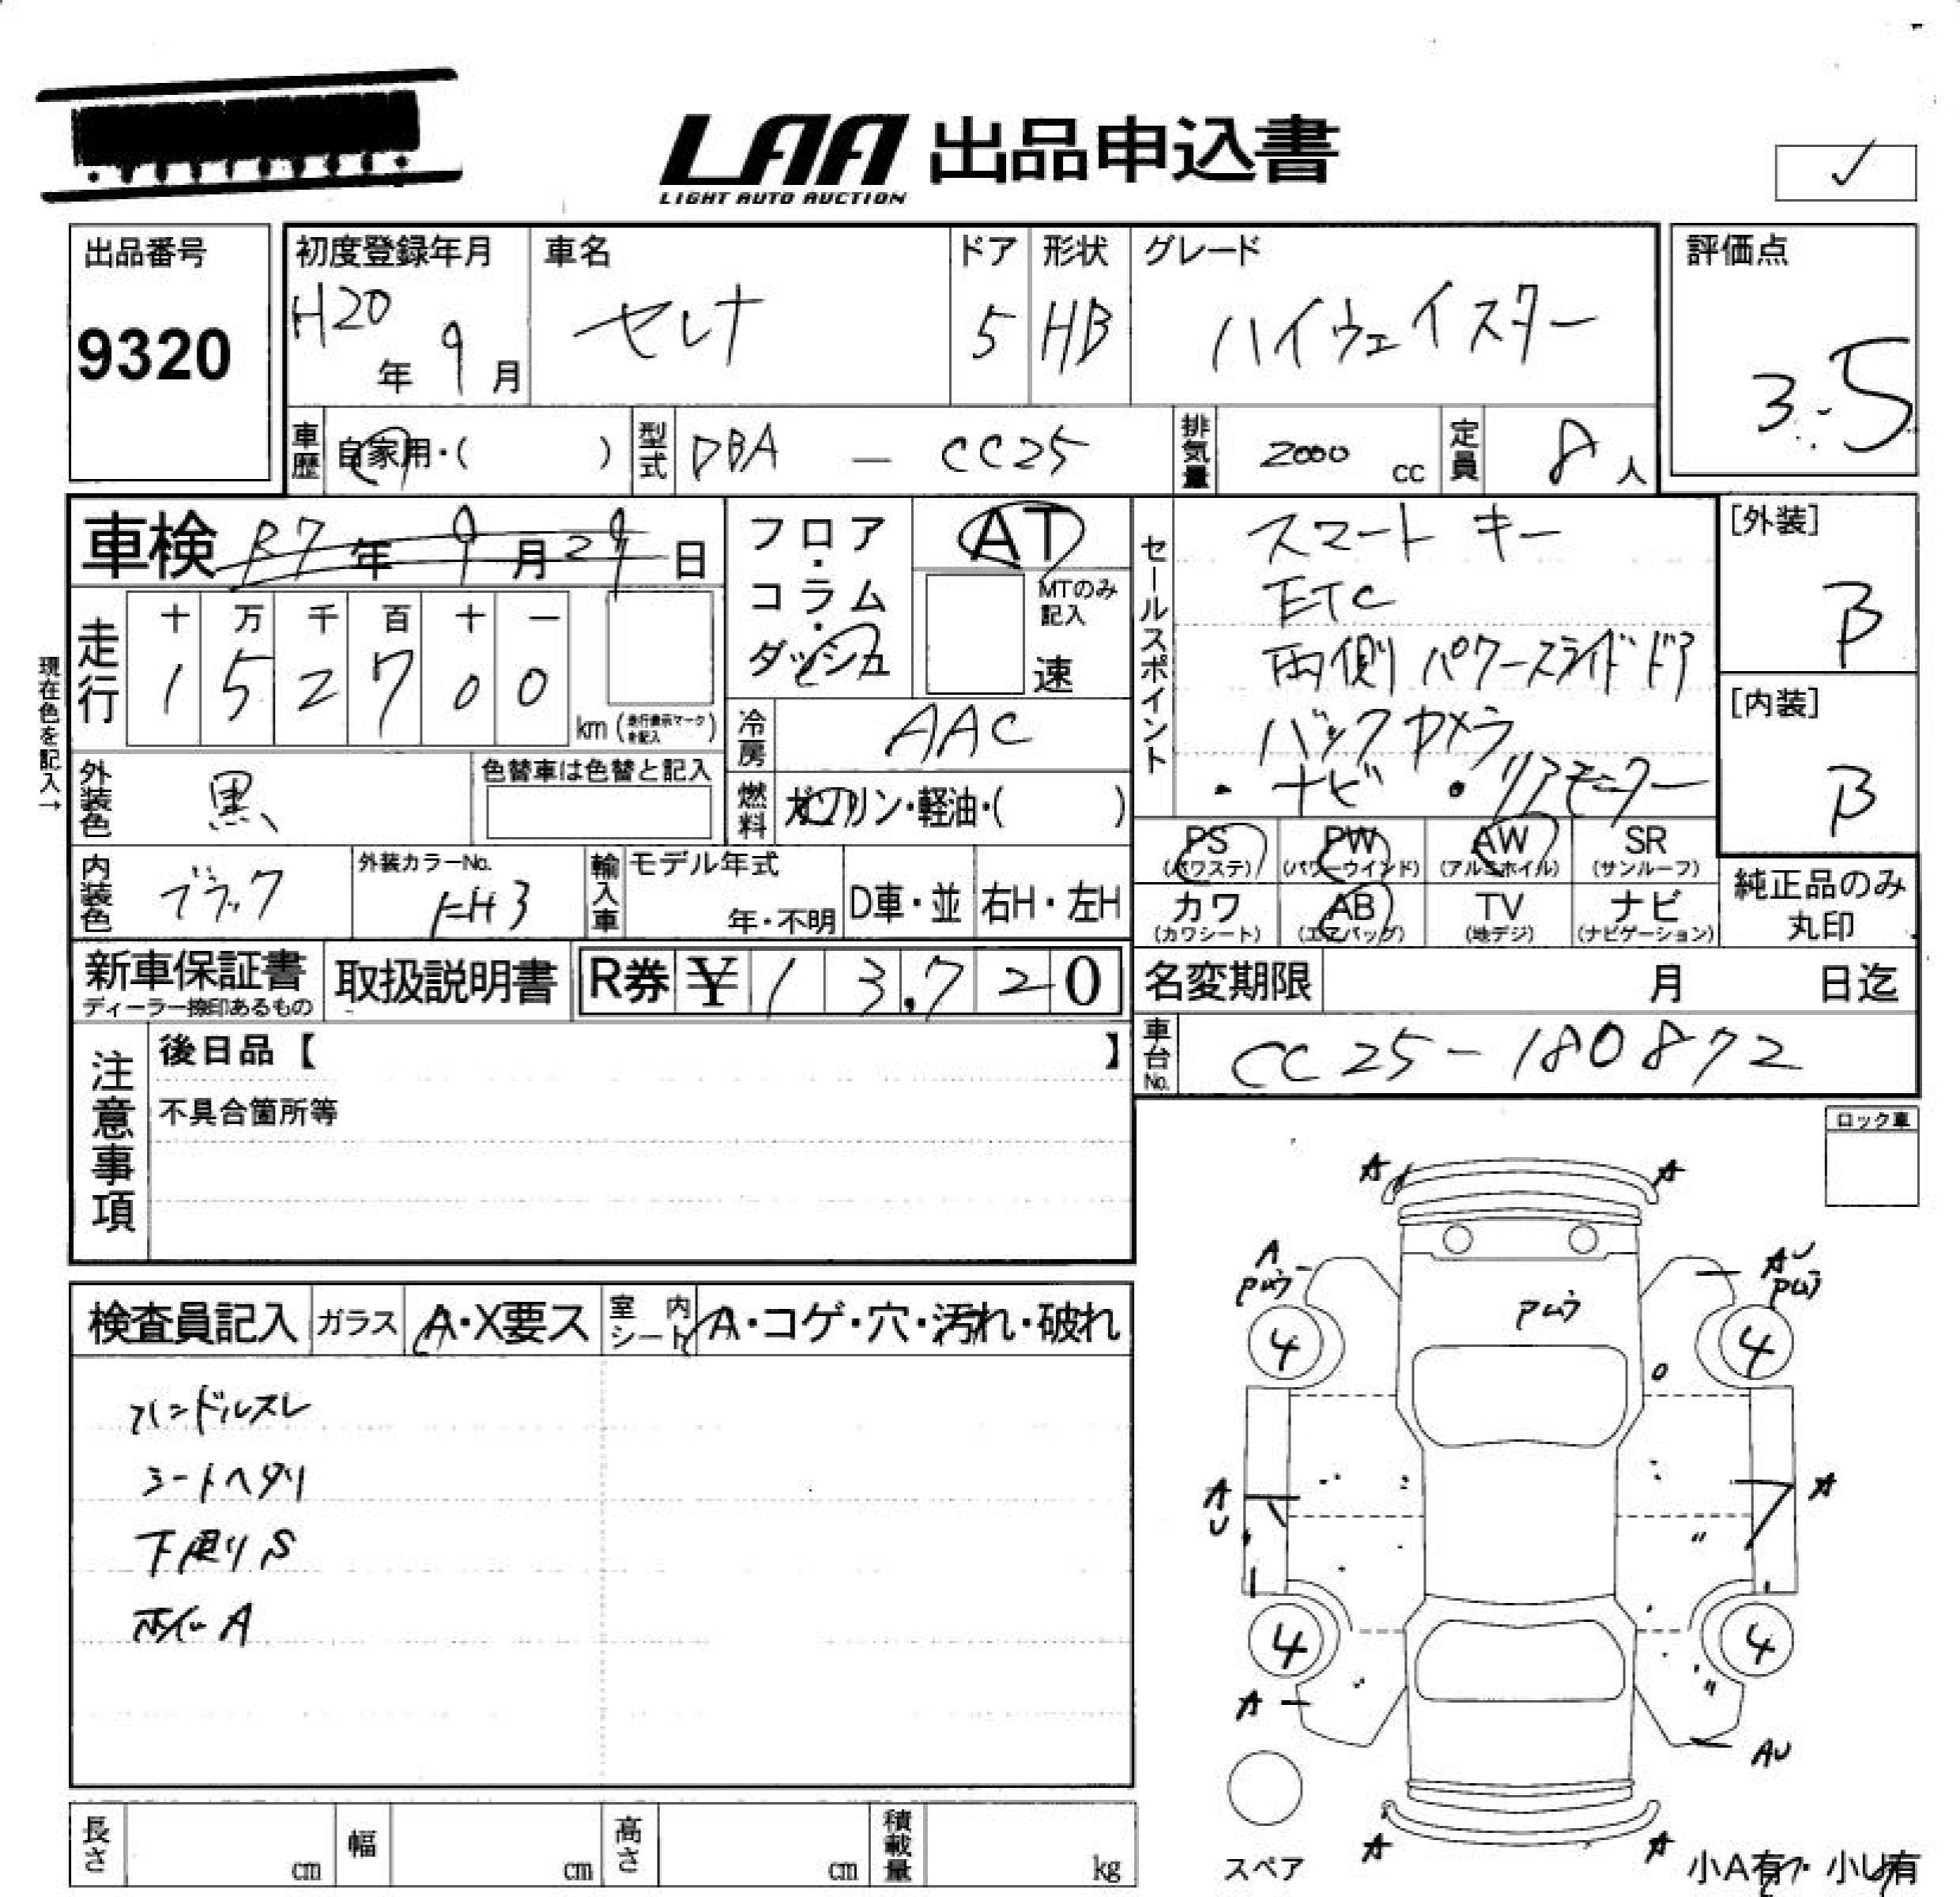 LAA 出品申込書
LIGHT AUTO AUCTION
✓
出品番号
9320
初度登録年月
H20年 9月
車名
セレナ
ドア
5
形状
HB
グレード
ハイウェイスター
評価点
3.5
車歴 自家用・( )
型式 DBA - CC25
排気量 2000 cc
定員 8人
車検 R7年 9月 29日
フロア・コラム・ダッシュ
AT
MTのみ記入
速
走行
十 万 千 百 十 一
1 5 2 7 0 0
km (走行表示マークを記入)
現在色を記入→
冷房 AAC
外装色 黒
色替車は色替と記入
燃料 ガソリン・軽油・( )
内装色 ブラック
外装カラーNo.
KH3
輸入車
モデル年式
年・不明
D車・並
右H・左H
セールスポイント
スマートキー
ETC
両側パワースライドドア
バックカメラ
・ナビ ・リアモニター
[外装]
B
[内装]
B
PS (パワステ)
PW (パワーウインド)
AW (アルミホイル)
SR (サンルーフ)
カワ (カワシート)
AB (エアバッグ)
TV (地デジ)
ナビ (ナビゲーション)
純正品のみ丸印
新車保証書
ディーラー捺印あるもの
取扱説明書
R券 ¥ 13,720
名変期限 月 日迄
車台No. CC25-180872
注意事項
後日品【 】
不具合箇所等
ロック車
検査員記入
ガラス A・X要ス
室内シート A・コゲ・穴・汚れ・破れ
ハンドルスレ
シートヘタリ
下廻りS
ホイルA
A A
A
Pムラ
AU
Pムラ
Pムラ
4 4
A
U
A
4 4
A
AU
A A
スペア
小A有・小U有
長さ cm
幅 cm
高さ cm
積載量 kg